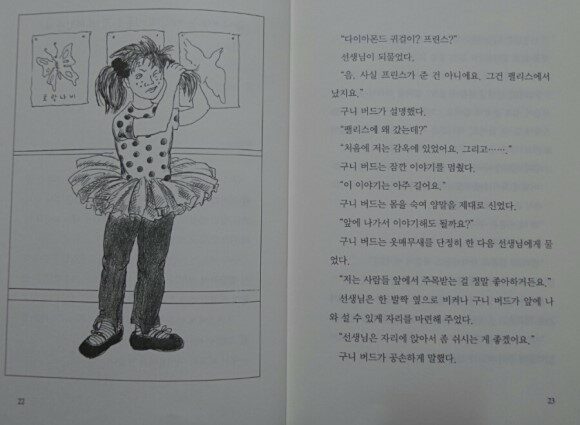 호랑나비
22
“다이아몬드 귀걸이? 프린스?”
선생님이 되물었다.
“음, 사실 프린스가 준 건 아니에요. 그건 팰리스에서
났지요.”
구니 버드가 설명했다.
“팰리스에 왜 갔는데?”
“처음에 저는 감옥에 있었어요. 그리고…….”
구니 버드는 잠깐 이야기를 멈췄다.
“이 이야기는 아주 길어요.”
구니 버드는 몸을 숙여 양말을 제대로 신었다.
“앞에 나가서 이야기해도 될까요?”
구니 버드는 옷매무새를 단정히 한 다음 선생님에게 물
었다.
“저는 사람들 앞에서 주목받는 걸 정말 좋아하거든요.”
선생님은 한 발짝 옆으로 비켜나 구니 버드가 앞에 나
와 설 수 있게 자리를 마련해 주었다.
“선생님은 자리에 앉아서 좀 쉬시는 게 좋겠어요.”
구니 버드가 공손하게 말했다.
23